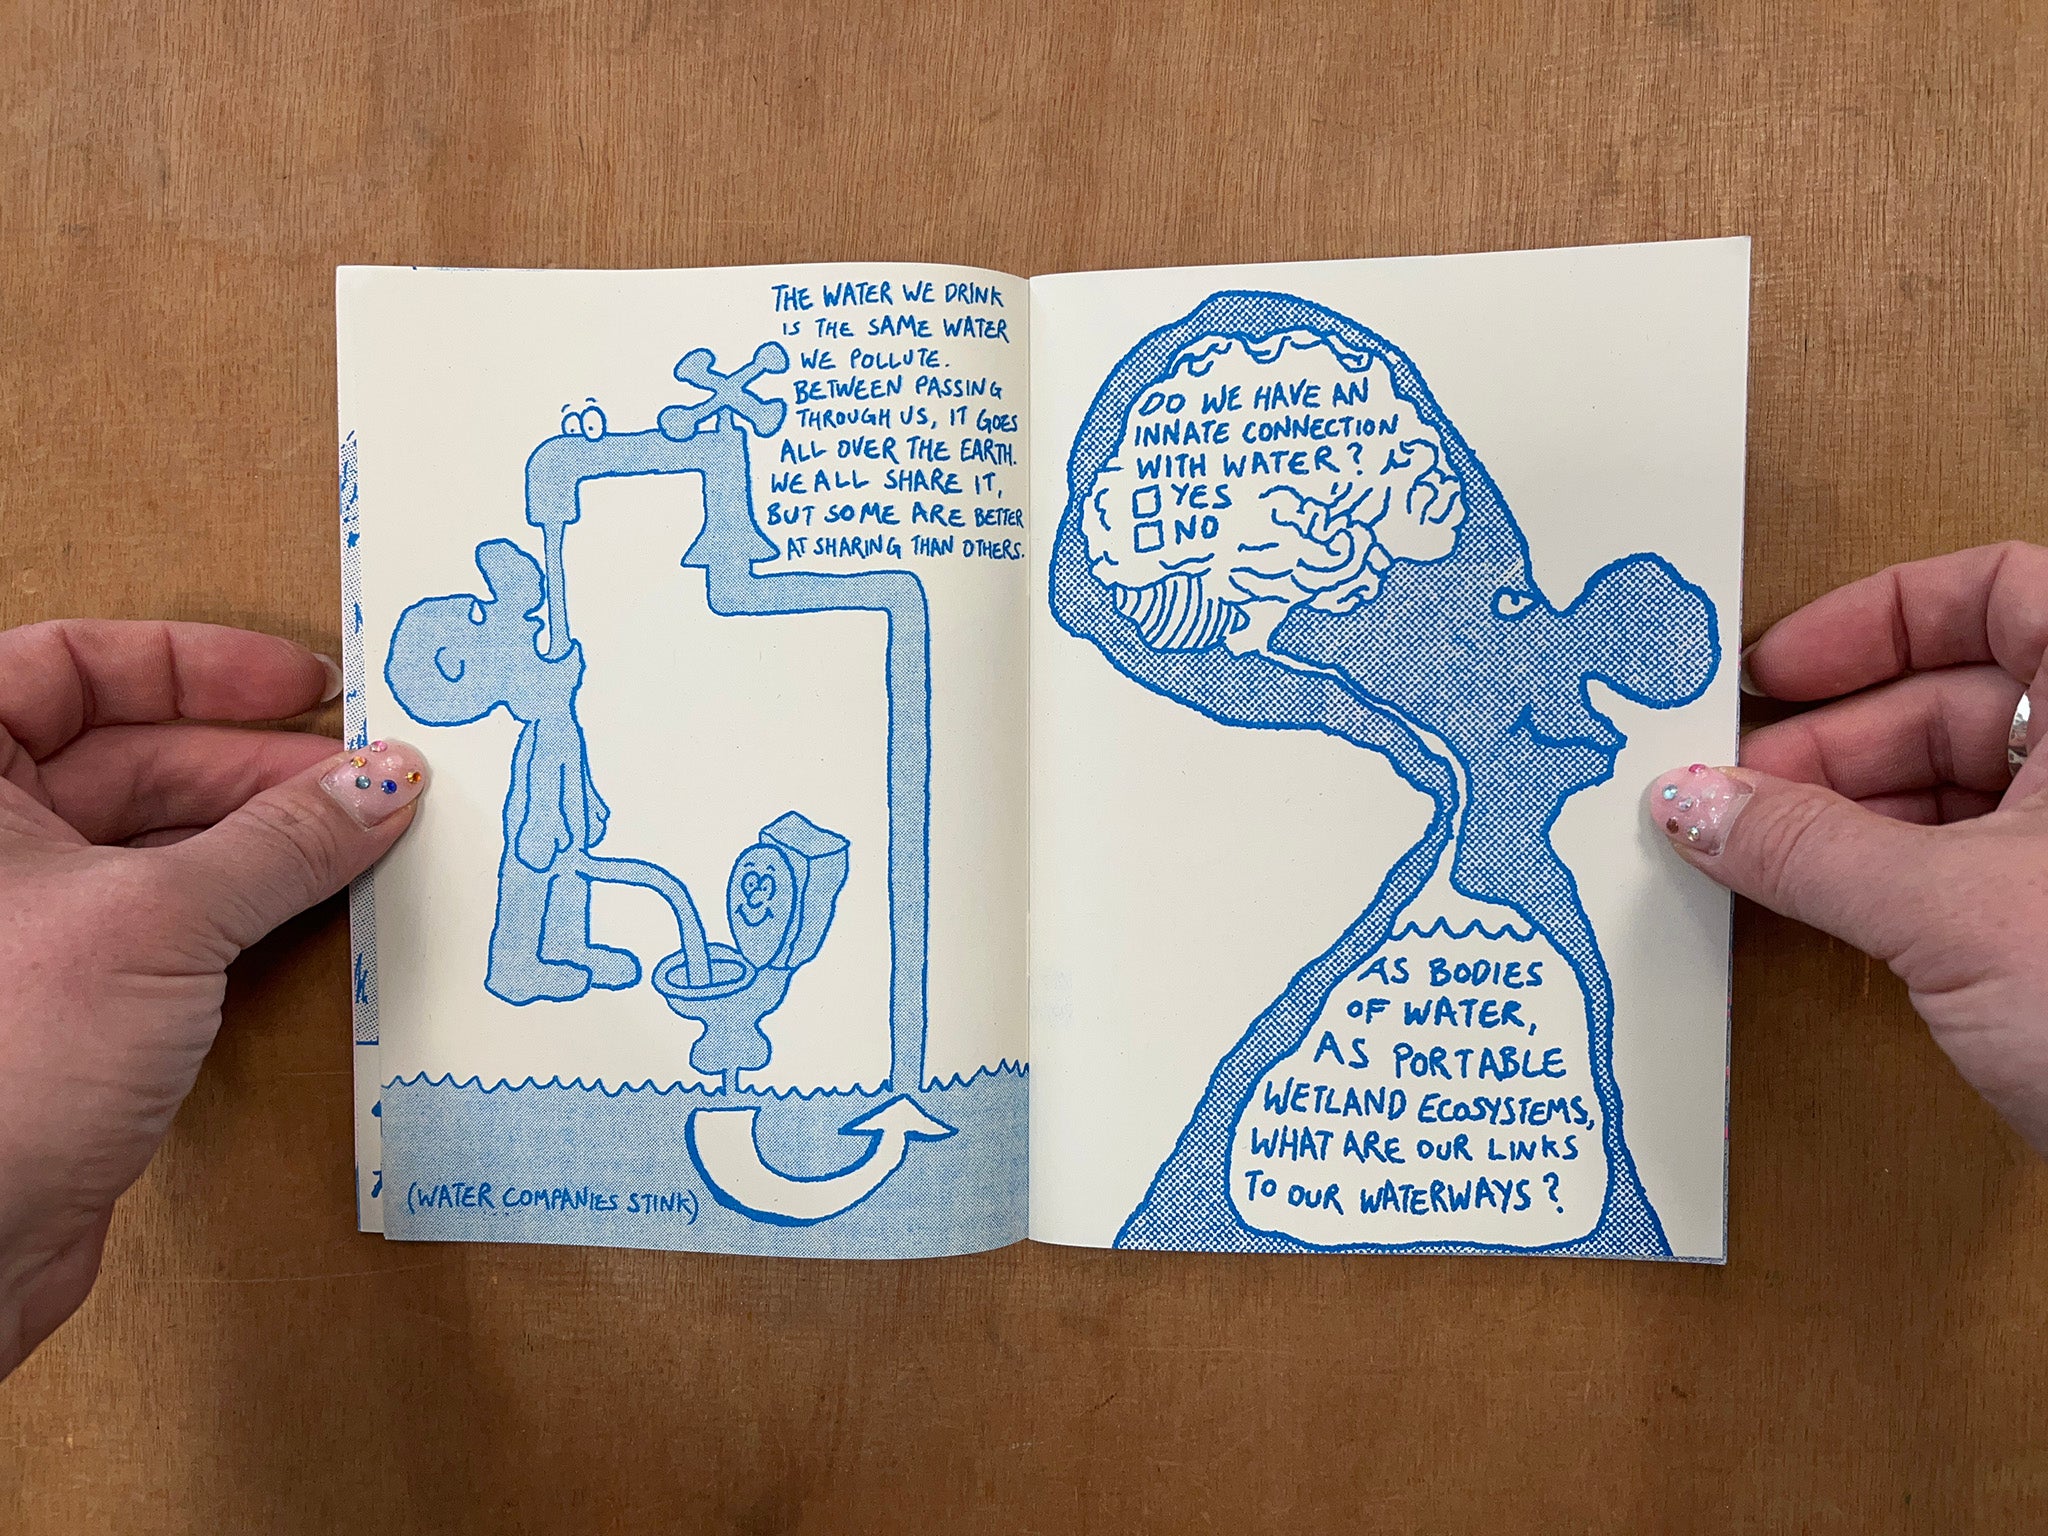 THE WATER WE DRINK
IS THE SAME WATER
WE POLLUTE.
BETWEEN PASSING
THROUGH US, IT GOES
ALL OVER THE EARTH.
WE ALL SHARE IT,
BUT SOME ARE BETTER
AT SHARING THAN OTHERS.
(WATER COMPANIES STINK)
DO WE HAVE AN
INNATE CONNECTION
WITH WATER?
YES
NO
AS BODIES
OF WATER,
AS PORTABLE
WETLAND ECOSYSTEMS,
WHAT ARE OUR LINKS
TO OUR WATERWAYS?